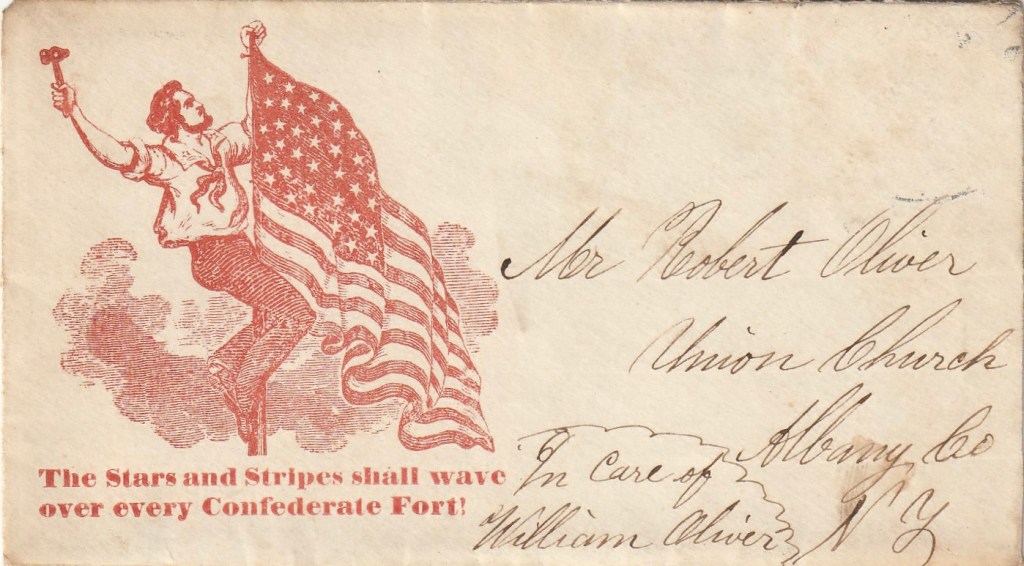 The Stars and Stripes shall wave
over every Confederate Fort!
Mr Robert Oliver
Union Church
Albany Co
N Y
In care of
William Oliver